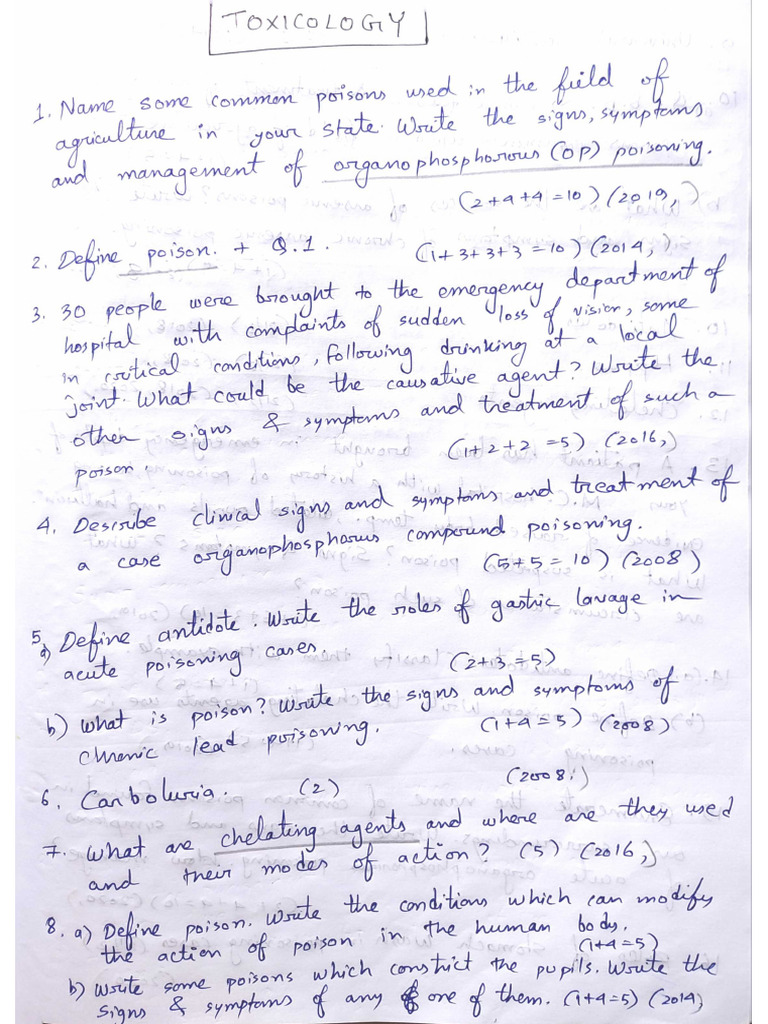 TOXICOLOGY
1. Name some common poisons used in the field of
agriculture in your state. Write the signs, symptoms
and management of organophosphorous (OP) poisoning.
(2+4+4=10) (2019,
2. Define poison. + Q.1. (1+3+3+3=10) (2014,)
3. 30 people were brought to the emergency department of
hospital with complaints of sudden loss of vision, some
in critical conditions, following drinking at a local
joint. What could be the causative agent? Write the
other signs & symptoms and treatment of such a
poison. (1+2+2 =5) (2016,)
4. Describe clinical signs and symptoms and treatment of
a case organophosphorus compound poisoning.
(5+5=10) (2008)
5. a) Define antidote. Write the roles of gastric lavage in
acute poisoning cases. (2+3=5)
b) What is poison? Write the signs and symptoms of
chronic lead poisoning. (1+4=5) (2008)
6. Carboluria. (2) (2008.)
7. What are chelating agents and where are they used
and their modes of action? (5) (2016,)
8. a) Define poison. Write the conditions which can modify
the action of poison in the human body.
(1+4=5)
b) Write some poisons which constrict the pupils. Write the
signs & symptoms of any one of them. (1+4=5) (2014)